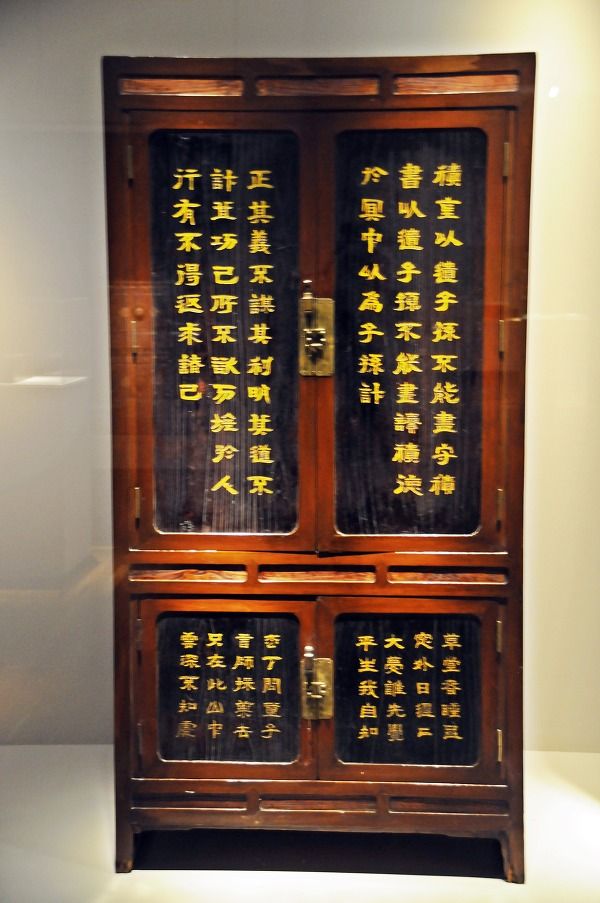 積金以遺子孫不能盡守積
書以遺子孫不能盡讀積德
於冥中以為子孫計
正其義不謀其利明其道不
計其功己所不欲勿施於人
行有不得返求諸己
草堂春睡足
窓外日遲二
大夢誰先覺
平生我自知
松下問童子
言師採藥去
只在此山中
雲深不知處